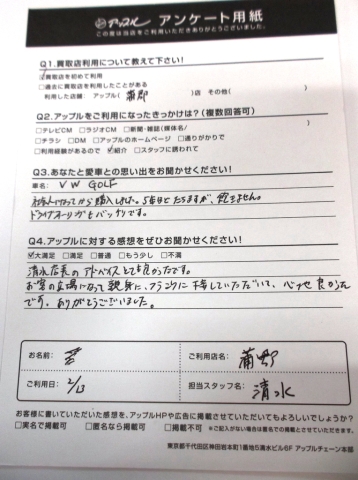 アップル アンケート用紙
この度は当店をご利用いただきありがとうございました。
Q1.買取店利用について教えて下さい!
☑買取店を初めて利用
□過去に買取店を利用したことがある
利用した店舗: アップル( 蒲郡 )店 その他( )
Q2.アップルをご利用になったきっかけは?(複数回答可)
□テレビCM □ラジオCM □新聞・雑誌(媒体名/ )
□チラシ □DM □アップルのホームページ □通りがかりで
□利用経験があるので ☑紹介 □スタッフに誘われて
Q3.あなたと愛車との思い出をお聞かせください!
車名: VW GOLF
になってから購入しました。5年ほどたちますが、飽きません。
もバッチリです。
Q4.アップルに対する感想をぜひお聞かせください!
☑大満足 □満足 □普通 □もう少し □不満
清水店長のアドバイスとても良かったです。
お客の立場になって親身に、していただいて、良かった
です。ありがとうございました。
お名前:
ご利用店名: 蒲郡
ご利用日: 2/13
担当スタッフ名: 清水
お客様に書いていただいた感想を、アップルHPや広告に掲載させていただいてもよろしいでしょうか?
□実名で掲載可 □匿名なら掲載可 □掲載不可 ※ご記入がない場合は匿名での掲載とさせていただきます。
東京都千代田区神田岩本町1番地5清水ビル6F アップルチェーン本部